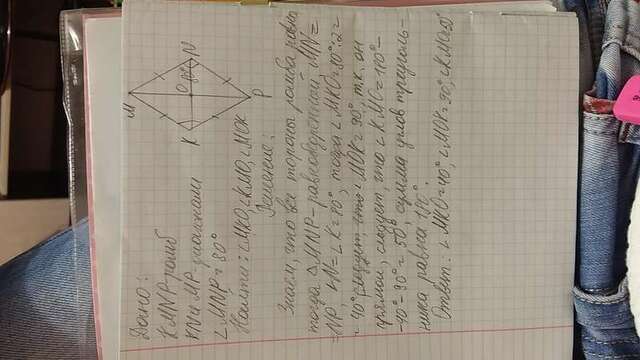 Дано:
KMNP-ромб
KN и MP-диагонали
∠MNP = 80°
Найти: ∠MKO, ∠KMO, ∠MOK
M
N
O
80°
K
P
Решение:
Знаем, что все стороны ромба равны,
тогда △MNP-равнобедренный, MN=
=NP, ∠N=∠K=80°, тогда ∠MKO=80°:2=
=40° следует что ∠MOK=90° т.к. он
прямой, следует, что ∠KMO=180°-
-40°-90°=50°, сумма углов треуголь-
ника равна 180°.
Ответ: ∠MKO=40°, ∠MOK=90°, ∠KMO=50°